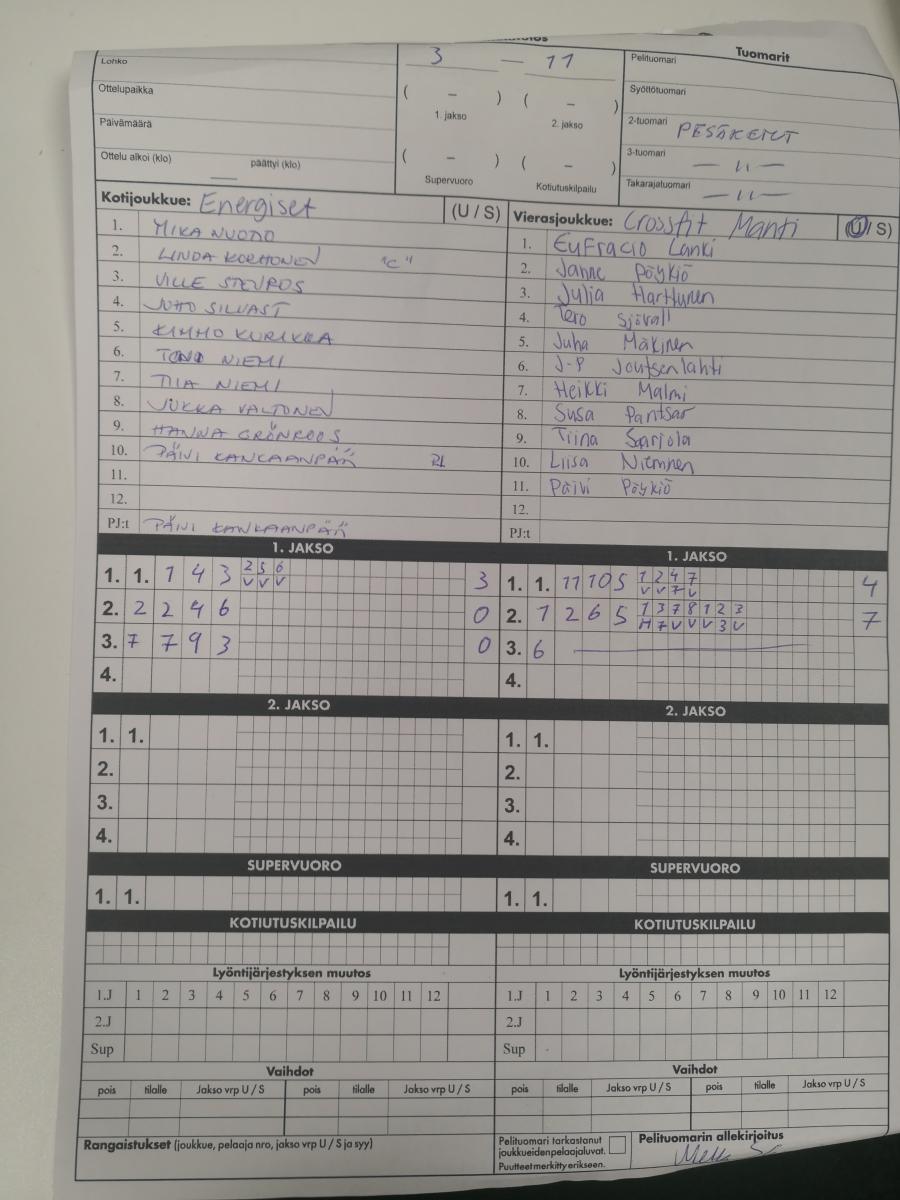 Tuomarit
Lohko
3 — 11
Pelituomari
Ottelupaikka
( – ) ( – )
Syöttötuomari
1. jakso 2. jakso
Päivämäärä
2-tuomari PESÄKENUT
3-tuomari — 11 —
Ottelu alkoi (klo) päättyi (klo)
( – ) ( – )
Supervuoro Kotiutuskilpailu
Takarajatuomari — 11 —
Kotijoukkue: Energiset (U / S)
1. MIKA NUOTIO
2. LINDA KORHONEN "C"
3. VILLE STOUROS
4. JUHO SILVAST
5. KIMMO KURIKKA
6. TONO NIEMI
7. TIIA NIEMI
8. JUKKA VALTONEN
9. HANNA GRÖNROOS
10. PÄIVI KANKAANPÄÄ
11.
12.
PJ:t PÄIVI KANKAANPÄÄ
Vierasjoukkue: Crossfit Manti (U / S)
1. Eufracio Lanki
2. Janne Pöykiö
3. Julia Harttunen
4. Tero Sjövall
5. Juha Mäkinen
6. J-P Joutsenlahti
7. Heikki Malmi
8. Susa Pantsar
9. Tiina Sarjola
10. Liisa Nieminen
11. Päivi Pöykiö
12.
PJ:t
1. JAKSO
1. 1. 1 4 3 2 5 6 3
V V V
2. 2 2 4 6 0
3. 7 7 9 3 0
4.
1. JAKSO
1. 1. 11 10 5 1 2 4 7 4
V V 7 V
2. 1 2 6 5 1 3 7 8 1 2 3 7
H 7 V V V 3 V
3. 6
4.
2. JAKSO
1. 1.
2.
3.
4.
2. JAKSO
1. 1.
2.
3.
4.
SUPERVUORO
1. 1.
SUPERVUORO
1. 1.
KOTIUTUSKILPAILU
KOTIUTUSKILPAILU
Lyöntijärjestyksen muutos
1.J 1 2 3 4 5 6 7 8 9 10 11 12
2.J
Sup
Lyöntijärjestyksen muutos
1.J 1 2 3 4 5 6 7 8 9 10 11 12
2.J
Sup
Vaihdot
pois tilalle Jakso vrp U / S pois tilalle Jakso vrp U / S
Vaihdot
pois tilalle Jakso vrp U / S pois tilalle Jakso vrp U / S
Rangaistukset (joukkue, pelaaja nro, jakso vrp U / S ja syy)
Pelituomari tarkastanut
joukkueidenpelaajaluvat.
Puutteet merkitty erikseen.
Pelituomarin allekirjoitus